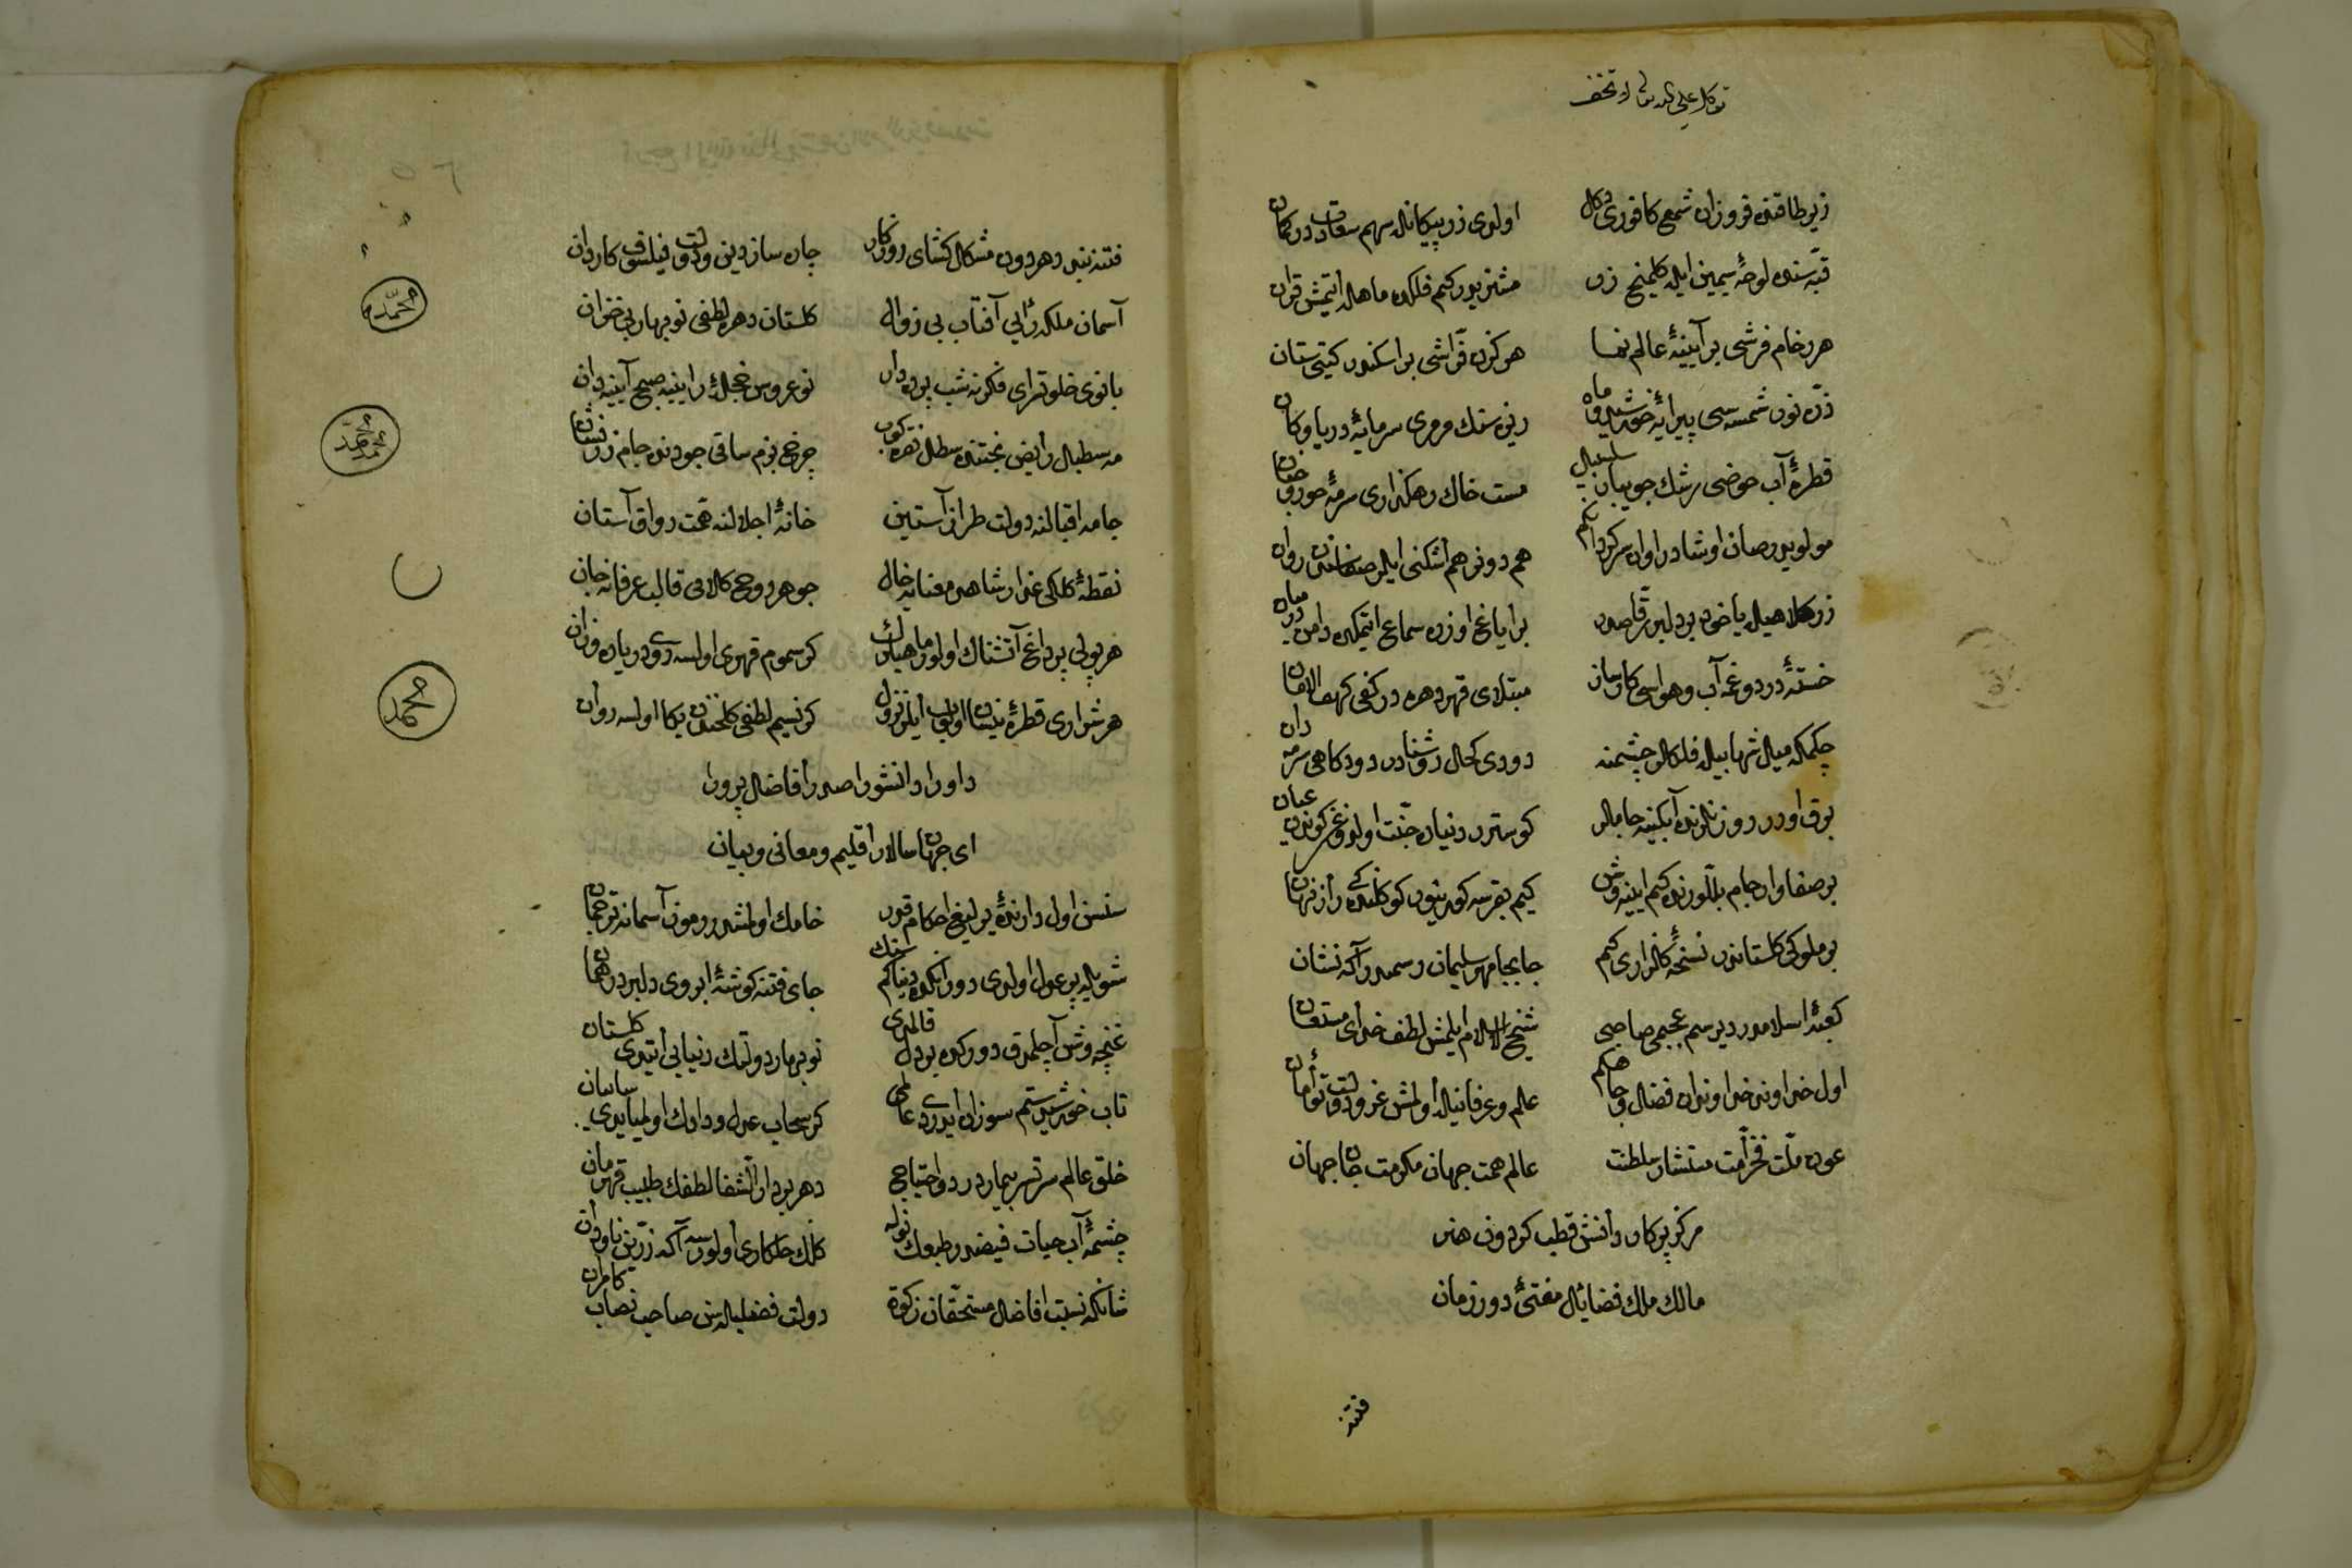 زیر طاقنده فروزان شمع کافوری دکل اولدی زر پیکانله سهم سعادت در کمان
قبه سنده لوحهٔ سیمین ایله کلمیخ زر مشتریدر کم فلکده ماهله ایتمش قران
هر رخام فرشی بر آیینهٔ عالم نما هر کزن فراشی بر اسکندر کیتی ستان
ذره نور شمسه سی پیرایهٔ خورشید و ماه ریزه سنک مرمری سرمایهٔ دریا و کان
قطرهٔ آب حوضی رشك جویبار سلسبیل مست خاك رهکذاری سرمهٔ حور
مولویدر صان اوشادروان سرکردان کم هم دونر هم اشکنی ایلر روان
زر کلاهیله یاخود بر دلبر رقاصدر بر ایاغ اوزره سماع ایتمکده دامن در میان
خستهٔ درد و غمه آب و هواسی کارساز مبتلای قهر دهره در کفی کهف الامان
چکمکه میل شهابیله فلکلر چشمنه دودی کحال روشنادر دودکاهی سرمه دان
برق اورر روزنلرنده آبکینه جاملر کوسترر دنیاده جنت اولدوغن کوندن عیان
بر صفا وار جام بللورنده کیم ایینه وش
بر ملوکی کلستاندر نسخهٔ کلزاری کم جابجا مهر سلیمان رسمیدر آکه نشان
کعبهٔ اسلامدر دیرسم عجبمی صاحبی شیخ الاسلام ایلمش لطف خدای مستعان
اول خداوند خداوندان فضل و جاه کم علم و عرفانیله اولمش عز و دولت توأمان
عون ملت فخر امت مستشار سلطنت عالم همت جهان مکرمت جان جهان
مرکز پرکار دانش قطب کردون هنر
مالك ملك فضایل مفتئ دور زمان
فتنه
فتنه بند دهر دون مشکل کشای روزکار چاره ساز دین و دولت فیلسوف کاردان
آسمان ملکه رایی آفتاب بی زوال کلستان دهره لطفی نوبهار بی خزان
بانوی خلوتسرای فکرنه شب پرده دار نو عروس حجلهٔ راینه صبح آیینه دان
مه سطبل رایض بختنده سطل نقره کوب چرخ بزم ساقی جودنده جام زرنشان
جامه اقبالنه دولت طراز آستین خانهٔ اجلالنه همت رواق آستان
نقطهٔ کلکی عذار شاهد معنایه خال جوهر روح کلامی قالب عرفانه جان
هر پولی بر داغ آتشناك اولور ماهیلرك کر سموم قهری اولسه روی دریاده وزان
هر شراری قطرهٔ نیسان اولوب ایلر نزول کر نسیم لطفی کلخندن یکا اولسه روان
داورا دانشورا صدرا فاضل پرورا
ای جهان سالار اقلیم و معانی و بیان
سنسن اول دارندهٔ یرلیغ احکام قدر خامك اولمشدر رموز آسمانه ترجمان
شویله پر عدل اولدی دورانکده دنیا کم جای فتنه کوشهٔ ابروی دلبردر همان
غنچه وش آچلمدق دورکده بر دل قالمدی نوبهار دولتك دنیایی ایتدی کلستان
تاب خورشید ستم سوزان ایدردی عالمی کر سحاب عدل و دادك اولمیایدی سایبان
خلق عالم سرتسر بیمار درد احتیاج دهر بر دار الشفا لطفك طبیب قهرمان
چشمهٔ آب حیات فیضدر طبعك نوله کلك حکمکاری اولورسه آکه زرین ناودان
شانکه نسبت افاضل مستحقان زکوة دولت فضلیله سن صاحب نصاب کامران
محمد
محمد
محمد